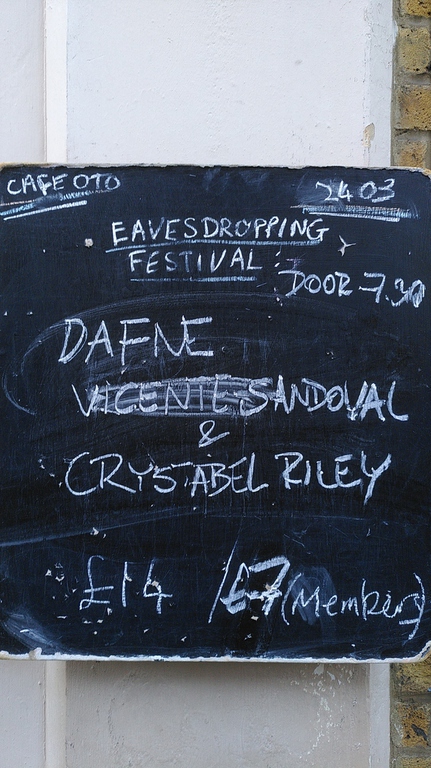 CAFE OTO 24 03
EAVESDROPPING
FESTIVAL
DOOR 7.30
DAFNE
VICENTE SANDOVAL
&
CRYSTABEL RILEY
£14 / £7 (Members)